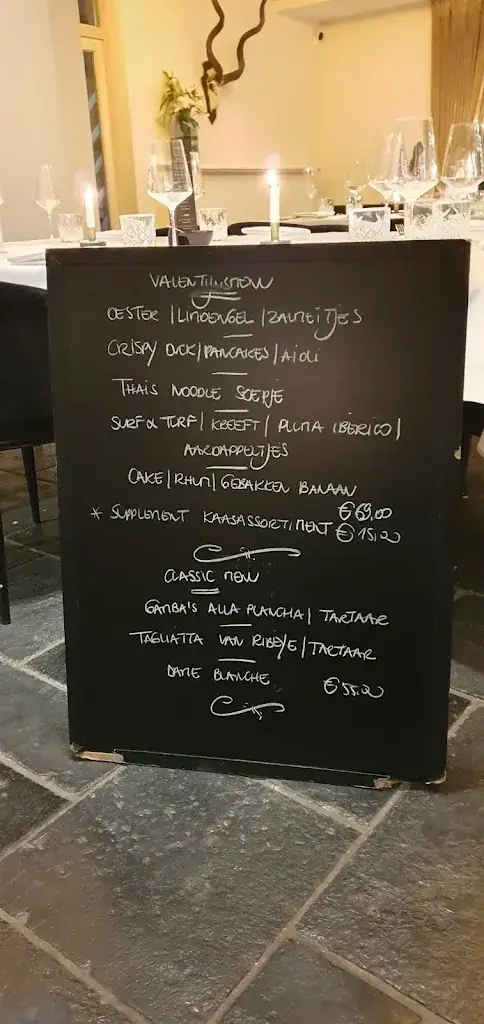 VALENTIJNSMENU
OESTER | LIMOENGEL | ZALMEITJES
CRISPY DUCK | PANCAKES | AIOLI
THAIS NOODLE SOEPJE
SURF & TURF | KREEFT | PLUMA IBERICO |
AARDAPPELTJES
CAKE | RHUM | GEBAKKEN BANAAN
€ 69,00
* SUPPLEMENT KAASASSORTIMENT € 15,00
CLASSIC MENU
GAMBA'S ALLA PLANCHA | TARTAAR
TAGLIATTA VAN RIBEYE | TARTAAR
DAME BLANCHE € 55,00